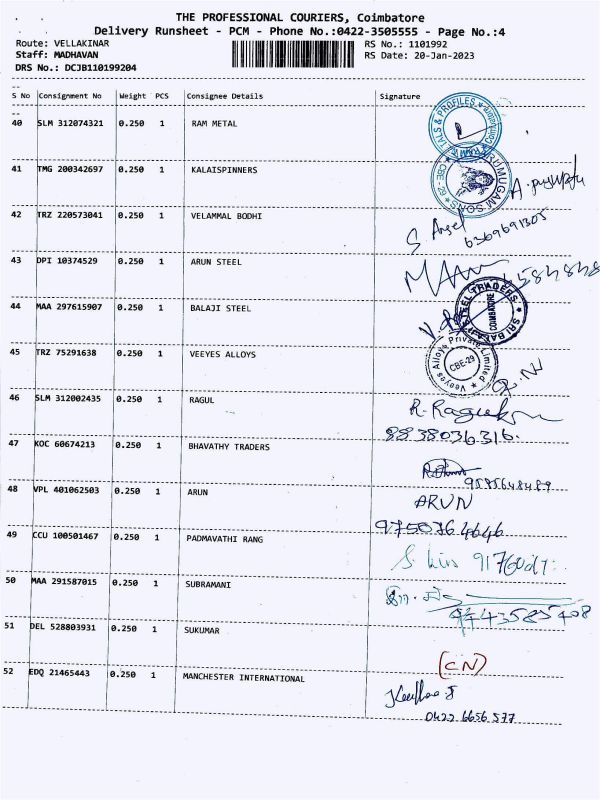 THE PROFESSIONAL COURIERS, Coimbatore
Delivery Runsheet - PCM - Phone No.:0422-3505555 - Page No.:4
Route: VELLAKINAR RS No.: 1101992
Staff: MADHAVAN RS Date: 20-Jan-2023
DRS No.: DCJB110199204
S No Consignment No Weight PCS Consignee Details Signature
40 SLM 312074321 0.250 1 RAM METAL
TALS & PROFILES
41 TMG 200342697 0.250 1 KALAISPINNERS
CBE-29 MUGAM SONS
42 TRZ 220573041 0.250 1 VELAMMAL BODHI
6369691305
43 DPI 10374529 0.250 1 ARUN STEEL
44 MAA 297615907 0.250 1 BALAJI STEEL
SRI BALAJI STEEL TRADERS
COIMBATORE
45 TRZ 75291638 0.250 1 VEEYES ALLOYS
Veeyes Alloys Private Limited
CBE-29
46 SLM 312002435 0.250 1 RAGUL
8838036316.
47 KOC 60674213 0.250 1 BHAVATHY TRADERS
48 VPL 401062503 0.250 1 ARUN
ARUN
9750764646
49 CCU 100501467 0.250 1 PADMAVATHI RANG
50 MAA 291587015 0.250 1 SUBRAMANI
51 DEL 528803931 0.250 1 SUKUMAR
(CN)
52 EDQ 21465443 0.250 1 MANCHESTER INTERNATIONAL
0422 6656 577